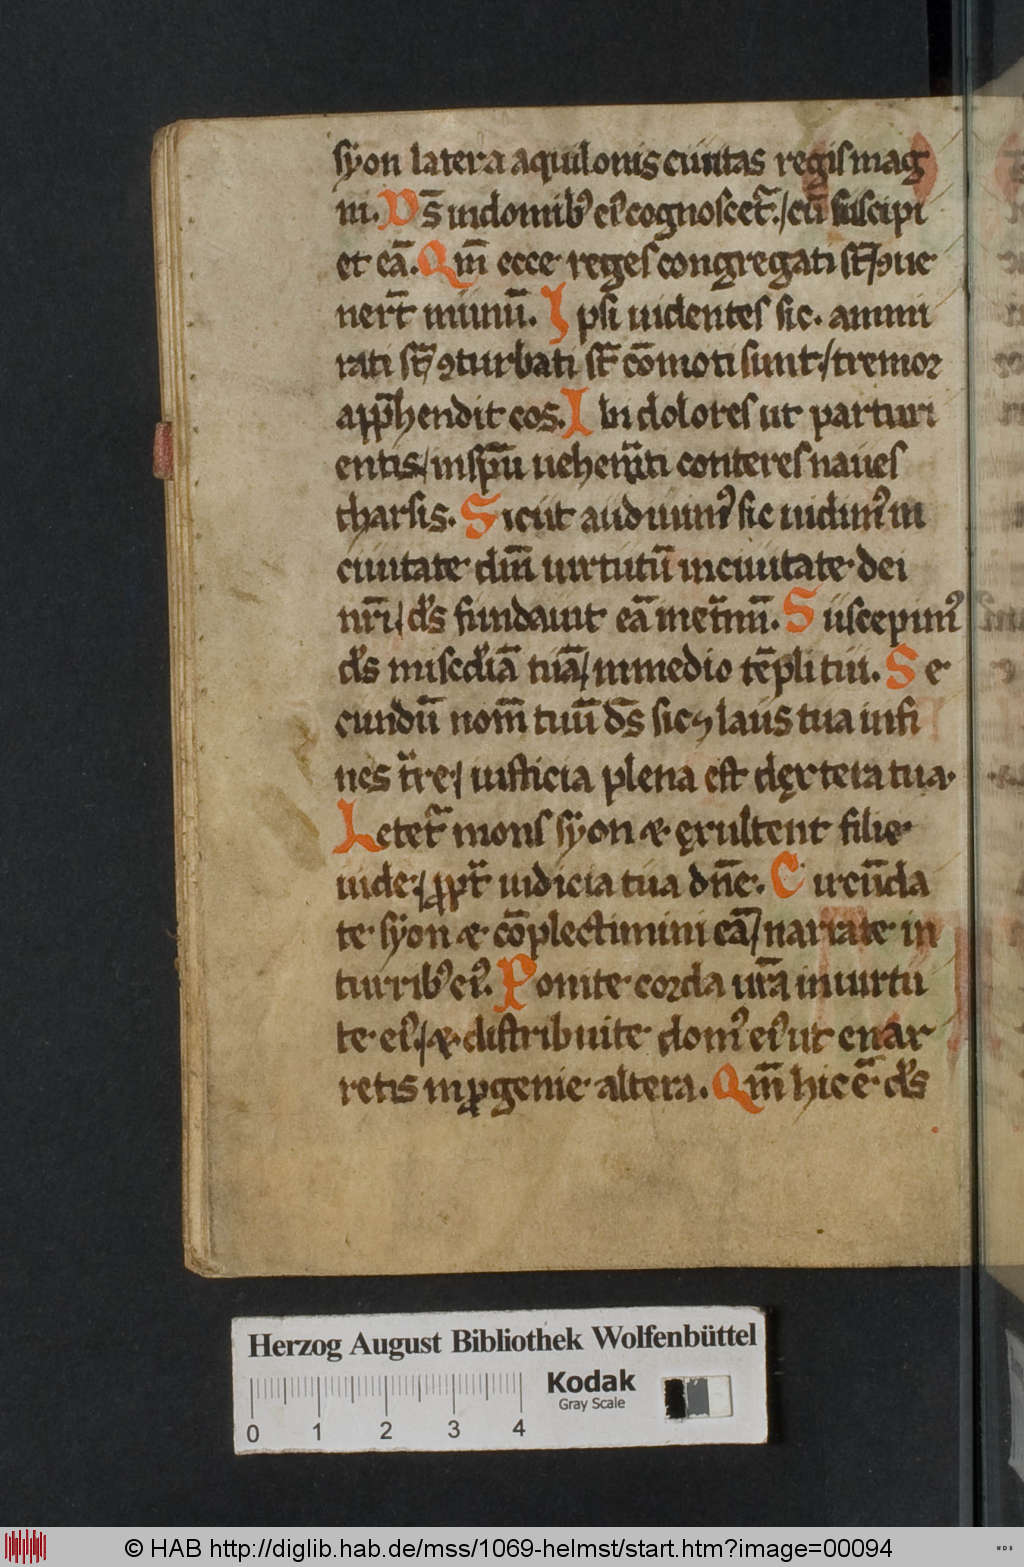 syon latera aquilonis ciuitas regis mag
ni. Ds̄ in domibꝰ eiꝰ cognoscet᷑./ cū suscipi
et eā. Qm̄ ecce reges congregati st̄/ ꝯue
nert̄ in unū. Ipsi uidentes sic ammi
rati st̄/ ꝯturbati st̄ cōmoti sunt./ tremoꝛ
app̄hendit eos. Ibi dolores ut parturi
entis/ in sp̄u uehem̄ti conteres naues
tharsis. Sicut audiuimꝰ sic uidimꝰ in
ciuitate dn̄i uirtutū in ciuitate dei
nr̄i/ ds̄ fundauit eā in et̄nū. Suscepimꝰ
ds̄ misc̄diā tuā/ in medio tēpli tui. Se
cundū nom̄ tuū ds̄ sic ⁊ laus tua in fi
nes t̄re/ iusticia plena est dęxtera tua.
Letet᷑ mons syon & ęxultent filie
iude/ ꝓpt̄ iudicia tua dn̄e. Circūda
te syon & cōplectimini eā/ narrate in
turribꝰ eiꝰ. Ponite corda ur̄a in uirtu
te eiꝰ/ & distribuite domꝰ eiꝰ ut enar
retis in ꝓgenie altera. Qm̄ hic ē ds̄
Herzog August Bibliothek Wolfenbüttel
Kodak
Gray Scale
0 1 2 3 4
© HAB http://diglib.hab.de/mss/1069-helmst/start.htm?image=00094